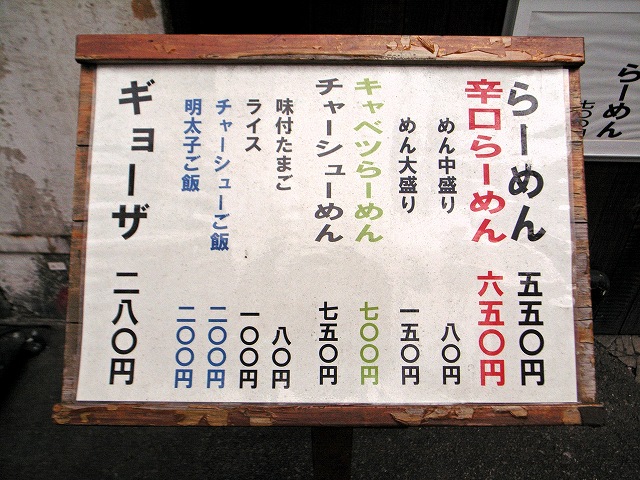 らーめん 五五〇円
辛口らーめん 六五〇円
めん中盛り 八〇円
めん大盛り 一五〇円
キャベツらーめん 七〇〇円
チャーシューめん 七五〇円
味付たまご 八〇円
ライス 一〇〇円
チャーシューご飯 二〇〇円
明太子ご飯 二〇〇円
ギョーザ 二八〇円
らーめん